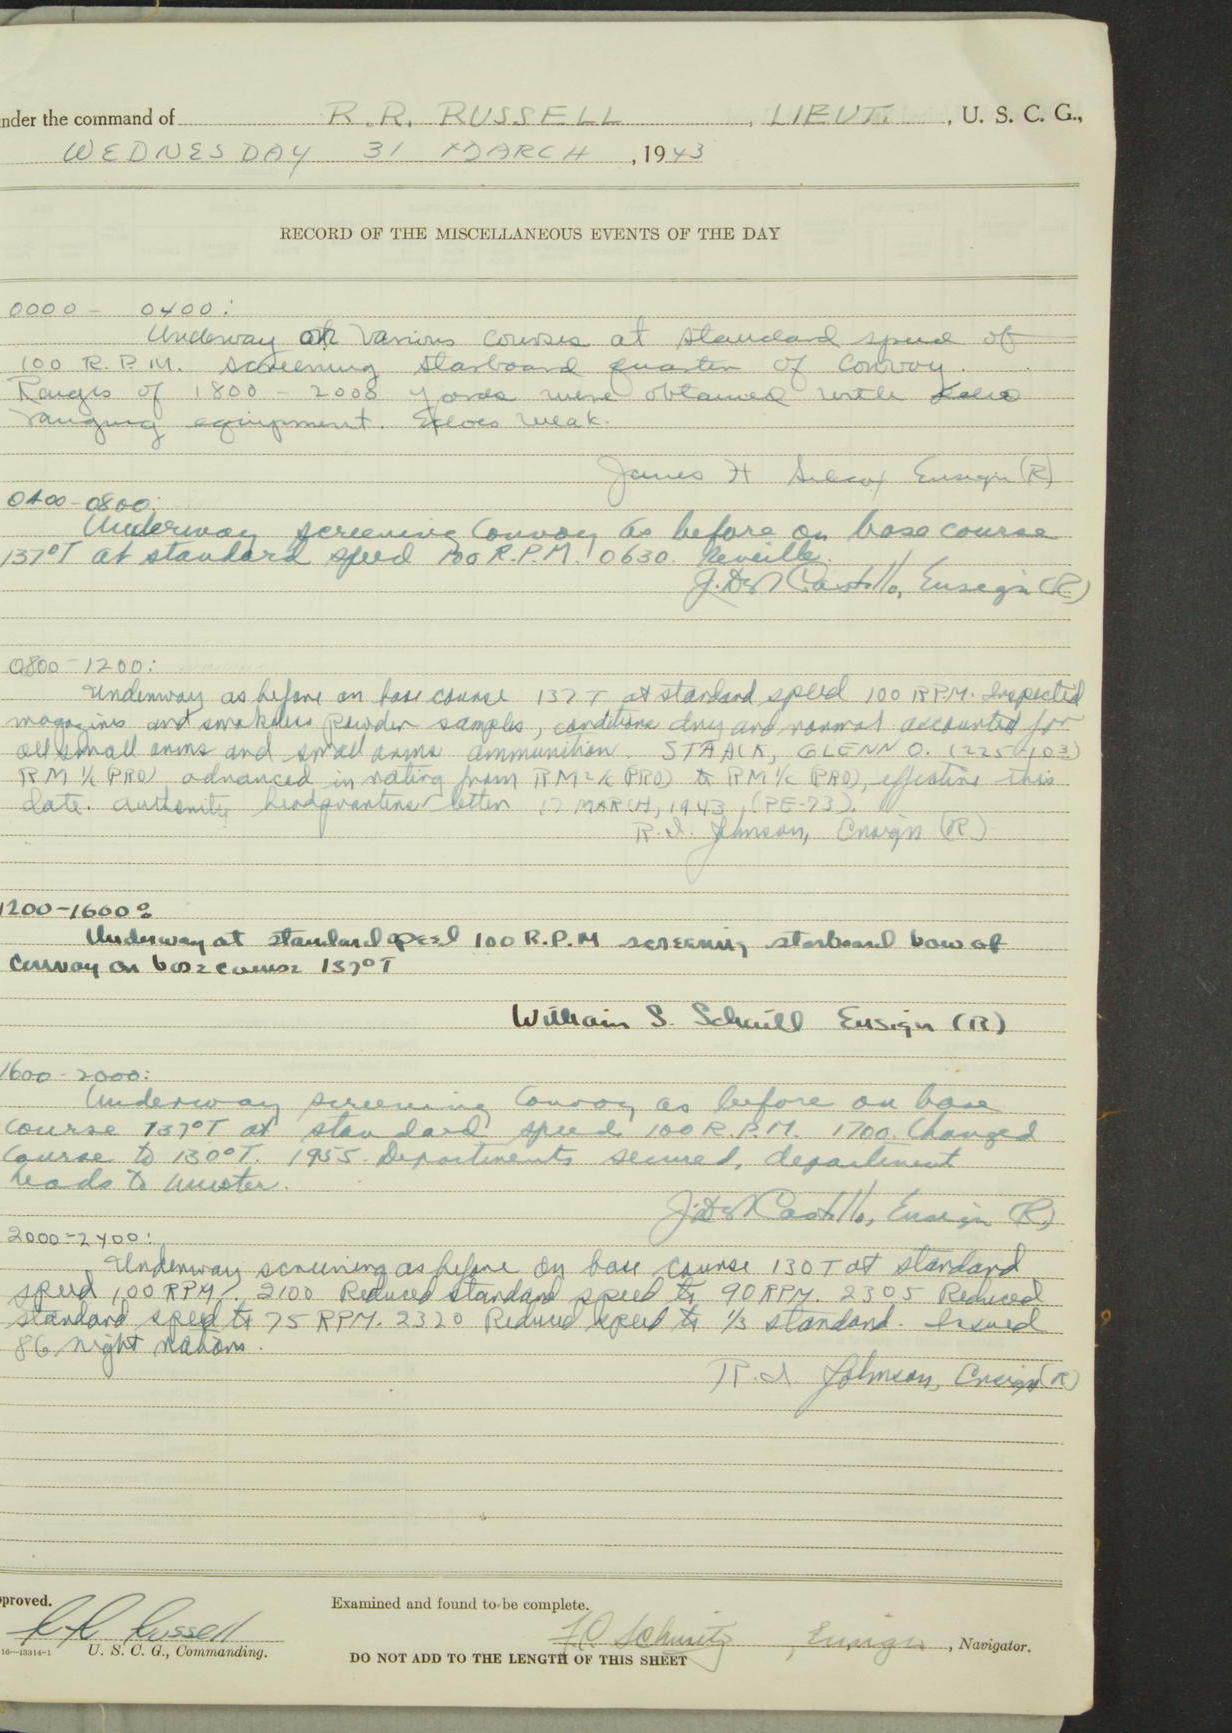 nder the command of R.R. RUSSELL, LIEUT., U. S. C. G.,
WEDNESDAY 31 MARCH, 1943
RECORD OF THE MISCELLANEOUS EVENTS OF THE DAY
0000 - 0400:
Underway on various courses at standard speed of
100 R.P.M. screening starboard quarter of Convoy.
Ranges of 1800 - 2000 yards were obtained with
ranging equipment. Echoes weak.
James H Ensign (R)
0400-0800:
Underway screening Convoy as before on base course
137°T at standard speed 100 R.P.M. 0630. Reveille.
Castillo, Ensign (R)
0800-1200:
Underway as before on base course 137 T at standard speed 100 RPM. Inspected
magazines and smokeless powder samples, conditions dry and normal accounted for
all small arms and small arms ammunition. STAACK, GLENN O. (225-103)
RM 1/c (PRO) advanced in rating from RM 2/c (PRO) to RM 1/c (PRO), effective this
date. authority headquarters letter 17 MARCH, 1943, (PE-73).
R. I. Johnson, Ensign (R)
1200-1600:
Underway at standard speed 100 R.P.M screening starboard bow of
convoy on base course 137°T
William S. Ensign (R)
1600-2000:
Underway screening Convoy as before on base
course 137°T at standard speed 100 R.P.M. 1700. Changed
course to 130°T. 1955. Departments secured, department
heads to muster.
Castillo, Ensign (R)
2000-2400:
Underway screening as before on base course 130 T at standard
speed, 100 RPM. 2100 Reduced standard speed to 90 RPM. 2305 Reduced
standard speed to 75 RPM. 2320 Reduced speed to 1/3 standard. Issued
86 night rations.
R. I. Johnson, Ensign (R)
pproved.
Examined and found to be complete.
R R Russell
Ensign, Navigator.
16—13314-1 U. S. C. G., Commanding.
DO NOT ADD TO THE LENGTH OF THIS SHEET